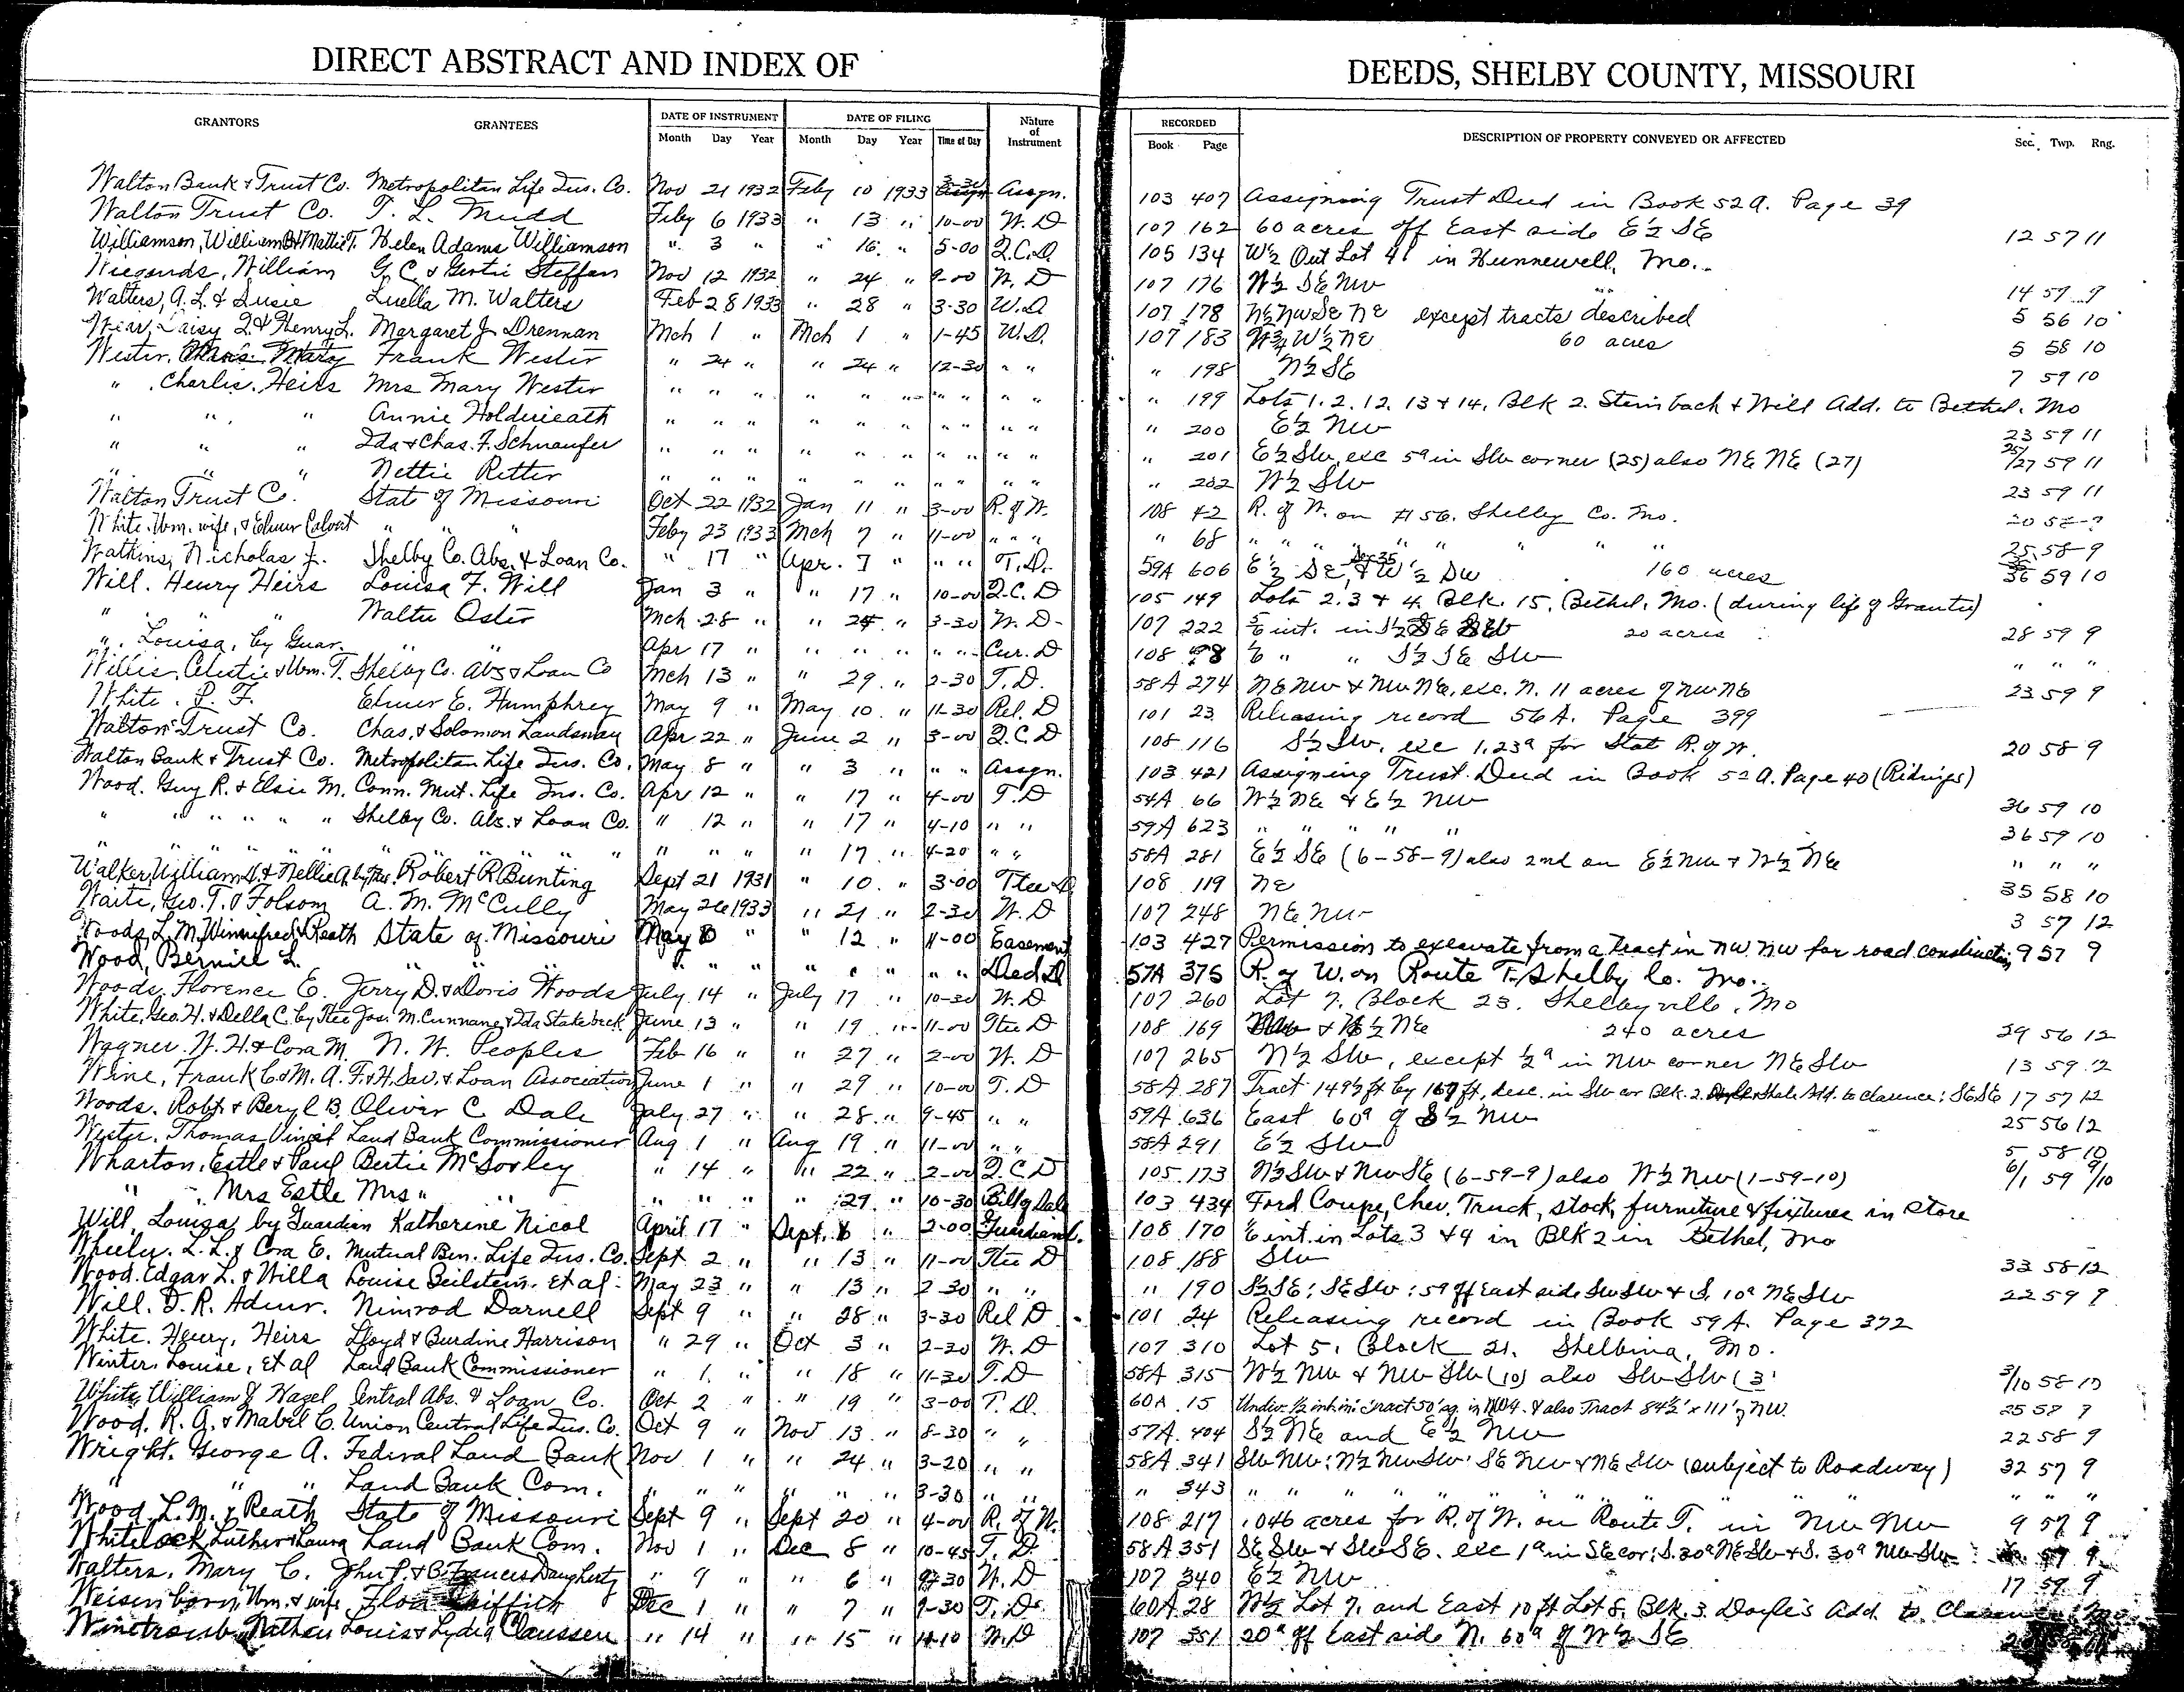 DIRECT ABSTRACT AND INDEX OF DEEDS, SHELBY COUNTY, MISSOURI
GRANTORS GRANTEES DATE OF INSTRUMENT Month Day Year DATE OF FILING Month Day Year Time of Day Nature of Instrument RECORDED Book Page DESCRIPTION OF PROPERTY CONVEYED OR AFFECTED Sec. Twp. Rng.
Walton Bank & Trust Co. Metropolitan Life Ins. Co. Nov 21 1932 Feby 10 1933 3-30 Assgn. 103 407 Assigning Trust Deed in Book 52A. Page 39
Walton Trust Co. T. L. Mudd Feby 6 1933 " 13 " 10-00 W. D 107 162 60 acres off East side E½ SE 12 57 11
Williamson, William B & Mattie T. Helen Adams Williamson " 3 " " 16 " 5-00 Q.C.D. 105 134 W½ Out Lot 41 in Hunnewell, Mo.
Wiegands, William G. C. & Gertie Steffan Nov 12 1932 " 24 " 9-00 W. D 107 176 W½ SE NW 14 57 9
Walters, A. L. & Susie Luella M. Walters Feb 28 1933 " 28 " 3-30 W.D 107 178 N½ NW SE NE except tracts described 5 56 10
Wear, Daisy Q. & Henry L. Margaret J. Drennan Mch 1 " Mch 1 " 1-45 W.D. 107 183 W¾ W½ NE 60 acres 5 58 10
Wester, Mary Frank Wester " 24 " " 24 " 12-30 " " " 198 N½ SE 7 59 10
" Charlie, Heirs Mrs Mary Wester " " " " " " " " " " " 199 Lots 1. 2. 12. 13 & 14. Blk 2. Steinbach & Will Add. to Bethel. Mo
" " " Annie Holderieath " " " " " " " " " " " 200 E½ NW 23 59 11
" " " Ida & Chas. F. Schnaufer " " " " " " " " " " " 201 E½ SW, exc 5ª in SW corner (25) also NE NE (27) 25/27 59 11
" " " Nettie Ritter " " " " " " " " " " " 202 W½ SW 23 59 11
Walton Trust Co. State of Missouri Oct 22 1932 Jan 11 " 3-00 R. of W. 108 42 R. of W. on #56. Shelby Co. Mo. 20 58 9
White. Wm. wife, & Elmer Calvert " " " Feby 23 1933 Mch 7 " 11-00 " " " " 68 " " " " " " " " " 25 58 9
Watkins, Nicholas J. Shelby Co. Abs. & Loan Co. " 17 " Apr. 7 " " " T. D. 59A 606 E½ SE, Sec 35 & W½ SW 160 acres 35/36 59 10
Will. Henry Heirs Louisa F. Will Jan 3 " " 17 " 10-00 Q.C. D 105 149 Lots 2. 3 & 4. Blk. 15. Bethel. Mo. (during life of Grantee)
" " " Walter Oster Mch 28 " " 24 " 3-30 W. D 107 222 5/6 int. in S½ SE SW 20 acres 28 59 9
" Louisa, by Guar. " " Apr 17 " " " " " " Cur. D 108 98 1/6 " " S½ SE SW " " "
Willis, Celestie & Wm. T. Shelby Co. Abs & Loan Co Mch 13 " " 29 " 2-30 T. D. 58A 274 NE NW & NW NE, exc. N. 11 acres of NW NE 23 59 9
White, P. F. Elmer E. Humphrey May 9 " May 10 " 11-30 Rel. D 101 23 Releasing record 56A. Page 399
Walton Trust Co. Chas. & Solomon Landsway Apr 22 " June 2 " 3-00 Q.C.D 108 116 S½ SW, exc 1.23ª for Stat R. of W. 20 58 9
Walton Bank & Trust Co. Metropolitan Life Ins. Co. May 8 " " 3 " " " Assgn. 103 421 Assigning Trust Deed in Book 52A. Page 40 (Ridings)
Wood. Guy R. & Elsie M. Conn. Mut. Life Ins. Co. Apr 12 " " 17 " 4-00 T. D 54A 66 W½ NE & E½ NW 36 59 10
" " " " " " Shelby Co. Abs. & Loan Co. " 12 " " 17 " 4-10 " " 59A 623 " " " " " 36 59 10
" " " " " " " " " " " " " " " 17 " 4-20 " " 58A 281 E½ SE (6-58-9) also 2nd on E½ NW & W½ NE " " "
Walker, William V. & Nellie A. by Ttee. Robert R Bunting Sept 21 1931 " 10 " 3-00 Ttee D 108 119 NE 35 58 10
Waite, Geo. T. & Folsom A. M. McCully May 26 1933 " 21 " 2-30 W. D 107 248 NE NW 3 57 12
Woods, L. M., Winnifred & Reath State of Missouri May 8 " " 12 " 11-00 Easement 103 427 Permission to excavate from a tract in NW NW for road construction 9 57 9
Wood, Bernice L. " " " " " " " " " " Ded. D 57A 375 R. of W. on Route T. Shelby Co. Mo.
Woods, Florence E. Jerry D. & Doris Woods July 14 " July 17 " 10-30 W. D 107 260 Lot 7. Block 23. Shelbyville, Mo
White, Geo. H. & Della C. by Ttee Jas. M. Cunnane & Ida Stakebeck June 13 " " 19 " 11-00 Ttee D 108 169 & N½ NE 240 acres 29 56 12
Wagner. W. H. & Cora M. N. W. Peoples Feb 16 " " 27 " 2-00 W. D 107 265 N½ SW, except ½ª in NW corner NE SW 13 59 12
Wine, Frank C. & M. A. F. & H. Sav. & Loan Association June 1 " " 29 " 10-00 T. D 58A 287 Tract 149½ ft by 167 ft, desc. in SW cor Blk. 2. Shale Add. to Clarence: SE SE 17 57 12
Woods. Robt & Beryl B. Oliver C. Dale July 27 " " 28 " 9-45 " " 59A 636 East 60ª of S½ NW 25 56 12
Wester. Thomas Vincil Land Bank Commissioner Aug 1 " Aug 19 " 11-00 " " 58A 291 E½ SW 5 58 10
Wharton, Estle & Paul Bertie McSorley " 14 " " 22 " 2-00 Q.C.D 105 173 N½ SW & NW SE (6-59-9) also W½ NW (1-59-10) 6/1 59 9/10
" Mrs Estle Mrs " " " " " " 29 " 10-30 Bill of Sale 103 434 Ford Coupe, Chev. Truck, stock, furniture & fixtures in store
Will, Louisa, by Guardian Katherine Nicol April 17 " Sept. 8 " 2-00 Guardian D. 108 170 1/6 int. in Lots 3 & 4 in Blk 2 in Bethel, Mo
Wheeler. L. L. & Cora E. Mutual Ben. Life Ins. Co. Sept 2 " " 13 " 11-00 Ttee D 108 188 SW 33 58 12
Wood. Edgar L. & Willa Louise Beilstein. Et al. May 23 " " 13 " 2-30 " " " 190 S½ SE; SE SW; 5ª off East side SW SW & S. 10ª NE SW 22 59 9
Will. D. R. Admr. Nimrod Darnell Sept 9 " " 28 " 3-30 Rel D 101 24 Releasing record in Book 59A. Page 372
White. Henry, Heirs Lloyd & Burdine Harrison " 29 " Oct 3 " 2-30 W. D 107 310 Lot 5. Block 21. Shelbina, Mo.
Winter. Louise, et al Land Bank Commissioner " 1. " " 18 " 11-30 T. D 58A 315 W½ NW & NW SW (10) also SW SW (3) 3/10 58 10
White, William & Hazel Central Abs. & Loan Co. Oct 2 " " 19 " 3-00 T. D. 60A 15 Undiv. ½ int. in tract 50' sq. in NW¼. & also Tract 84½' x 111' of NW. 25 58 9
Wood. R. G. & Mabel C. Union Central Life Ins. Co. Oct 9 " Nov 13 " 8-30 " " 57A 404 S½ NE and E½ NW 22 58 9
Wright. George A. Federal Land Bank Nov 1 " " 24 " 3-20 " " 58A 341 SW NW; N½ NW SW; SE NW & NE SW (subject to Roadway) 32 57 9
" " " Land Bank Com. " " " " " " 3-30 " " " 343 " " " " " " " " " " " "
Wood. L. M. & Reath State of Missouri Sept 9 " Sept 20 " 4-00 R. of W. 108 217 1.046 acres for R. of W. on Route T. in NW NW 9 57 9
Whitelock, Luther & Laura Land Bank Com. Nov 1 " Dec 8 " 10-45 T. D 58A 351 SE SW & SW SE. exc 1ª in SE cor; S. 30ª NE SW & S. 30ª NW SW 57 9
Walters. Mary C. John P. & C. Frances Daugherty " 9 " " 6 " 9-30 W. D 107 340 E½ NW 17 59 9
Weisenborn, Wm. & wife Flora Griffith Dec 1 " " 7 " 9-30 T. D. 60A 28 W½ Lot 7. and East 10 ft Lot 8. Blk. 3. Doyle's Add. to Clarence, Mo
Winetroub, Nathan Louis & Lydia Claussen " 14 " " 15 " 11-10 W. D 107 351 20ª off East side N. 60ª of W½ SE